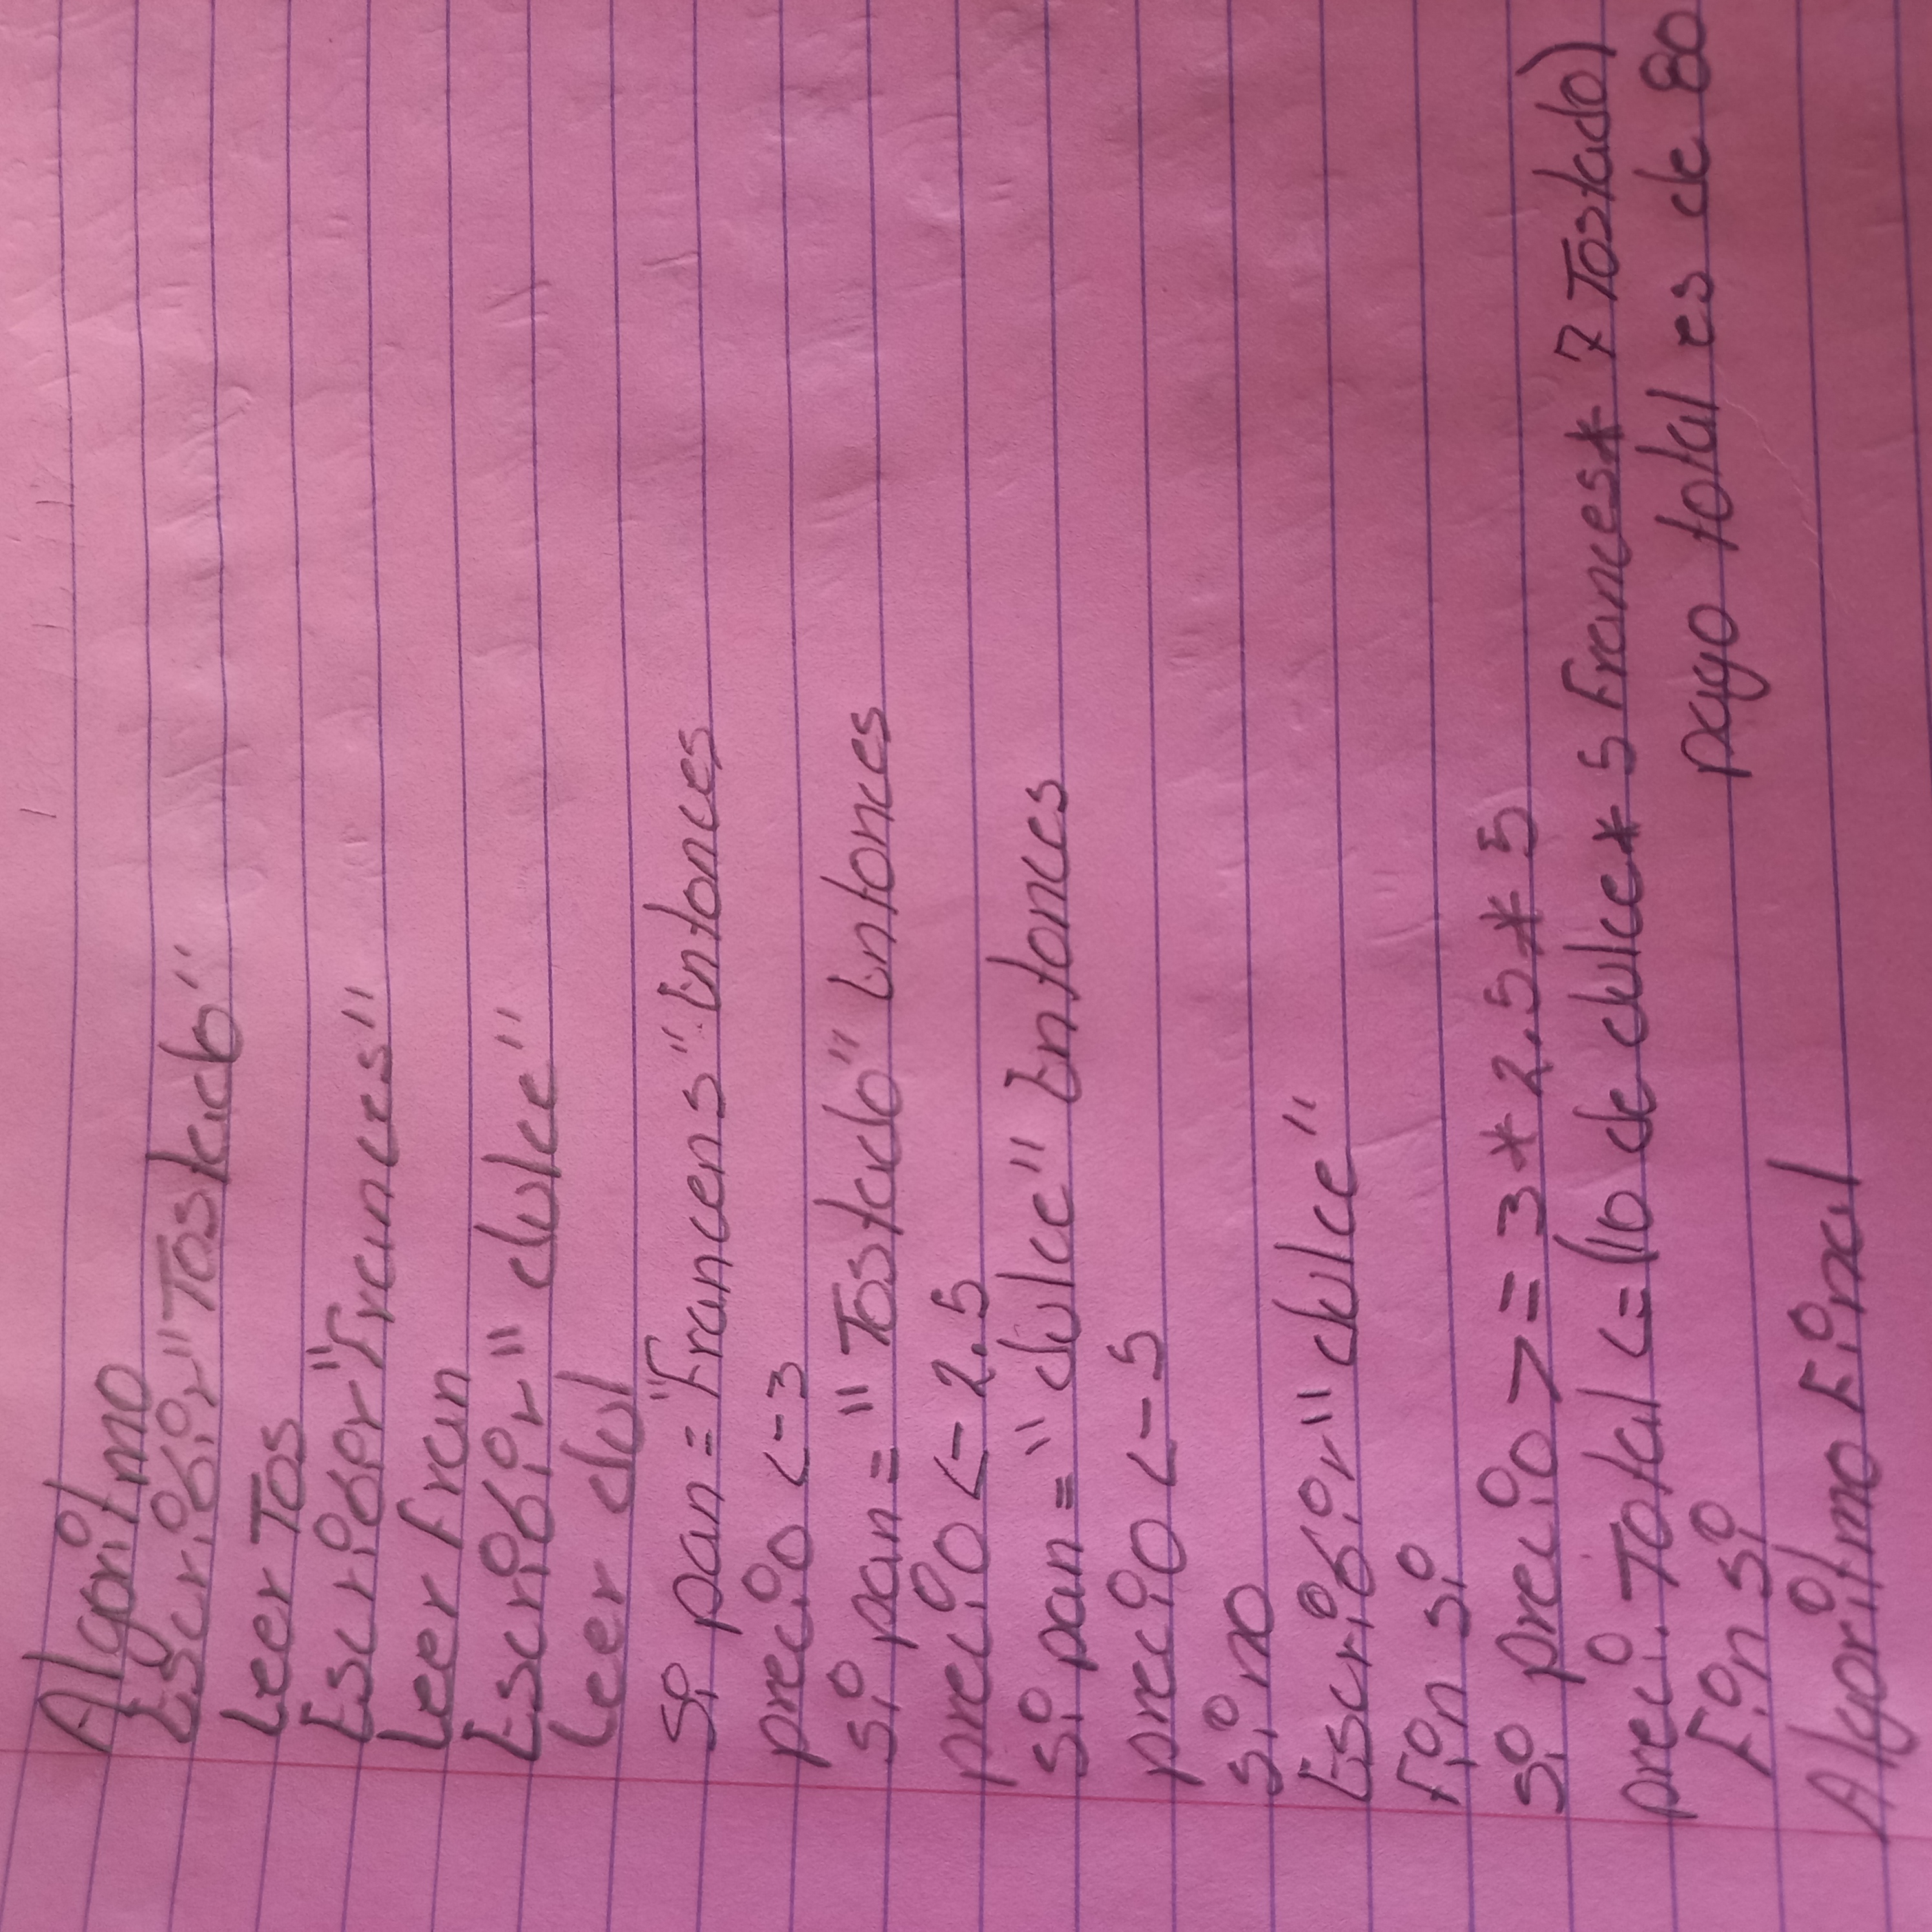 Algoritmo
Escribir "Tostado"
Leer Tos
Escriber "frances"
Leer fran
Escribir "dulce"
Leer dul
Si pan = "francens" Entonces
precio <-3
Si pan = "Tostado" Entonces
precio <- 2.5
Si pan = "dulce" Entonces
precio <- 5
Si no
Escribir "dulce"
Fin si
Si precio >= 3 * 2.5 * 5
preci. Total <= (10 de dulce * 5 frances * 7 Tostado)
Fin si pago total es de 80
Algoritmo Final